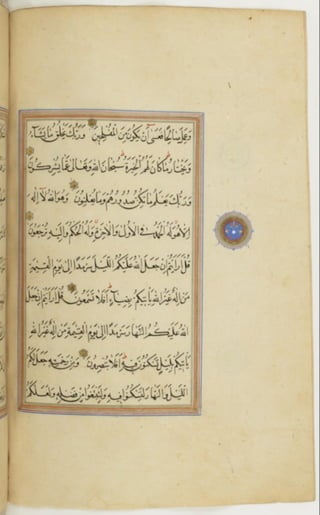 وَعَمِلَ صَالِحًا فَعَسَىٰ أَنْ يَكُونَ مِنَ الْمُفْلِحِينَ وَرَبُّكَ يَخْلُقُ مَا يَشَاءُ
وَيَخْتَارُ مَا كَانَ لَهُمُ الْخِيَرَةُ سُبْحَانَ اللَّهِ وَتَعَالَىٰ عَمَّا يُشْرِكُونَ
وَرَبُّكَ يَعْلَمُ مَا تُكِنُّ صُدُورُهُمْ وَمَا يُعْلِنُونَ وَهُوَ اللَّهُ لَا إِلَٰهَ
إِلَّا هُوَ لَهُ الْحَمْدُ فِي الْأُولَىٰ وَالْآخِرَةِ وَلَهُ الْحُكْمُ وَإِلَيْهِ تُرْجَعُونَ
قُلْ أَرَأَيْتُمْ إِنْ جَعَلَ اللَّهُ عَلَيْكُمُ اللَّيْلَ سَرْمَدًا إِلَىٰ يَوْمِ الْقِيَامَةِ
مَنْ إِلَٰهٌ غَيْرُ اللَّهِ يَأْتِيكُمْ بِضِيَاءٍ أَفَلَا تَسْمَعُونَ قُلْ أَرَأَيْتُمْ إِنْ جَعَلَ
اللَّهُ عَلَيْكُمُ النَّهَارَ سَرْمَدًا إِلَىٰ يَوْمِ الْقِيَامَةِ مَنْ إِلَٰهٌ غَيْرُ اللَّهِ
يَأْتِيكُمْ بِلَيْلٍ تَسْكُنُونَ فِيهِ أَفَلَا تُبْصِرُونَ وَمِنْ رَحْمَتِهِ جَعَلَ لَكُمُ
اللَّيْلَ وَالنَّهَارَ لِتَسْكُنُوا فِيهِ وَلِتَبْتَغُوا مِنْ فَضْلِهِ وَلَعَلَّكُمْ